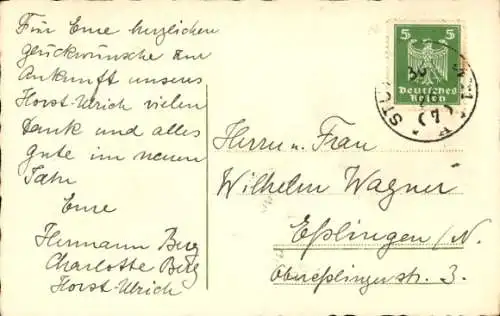 Für Eure herzlichen
glückwünsche zur
Ankunft unseres
Horst-Ulrich vielen
Dank und alles
gute im neuen
Jahr
Eure
Hermann Berg
Charlotte Berg
Horst-Ulrich
5 5
Deutsches
Reich
Herrn u. Frau
Wilhelm Wagner
Eßlingen/N.
Obereßlingerstr. 3.